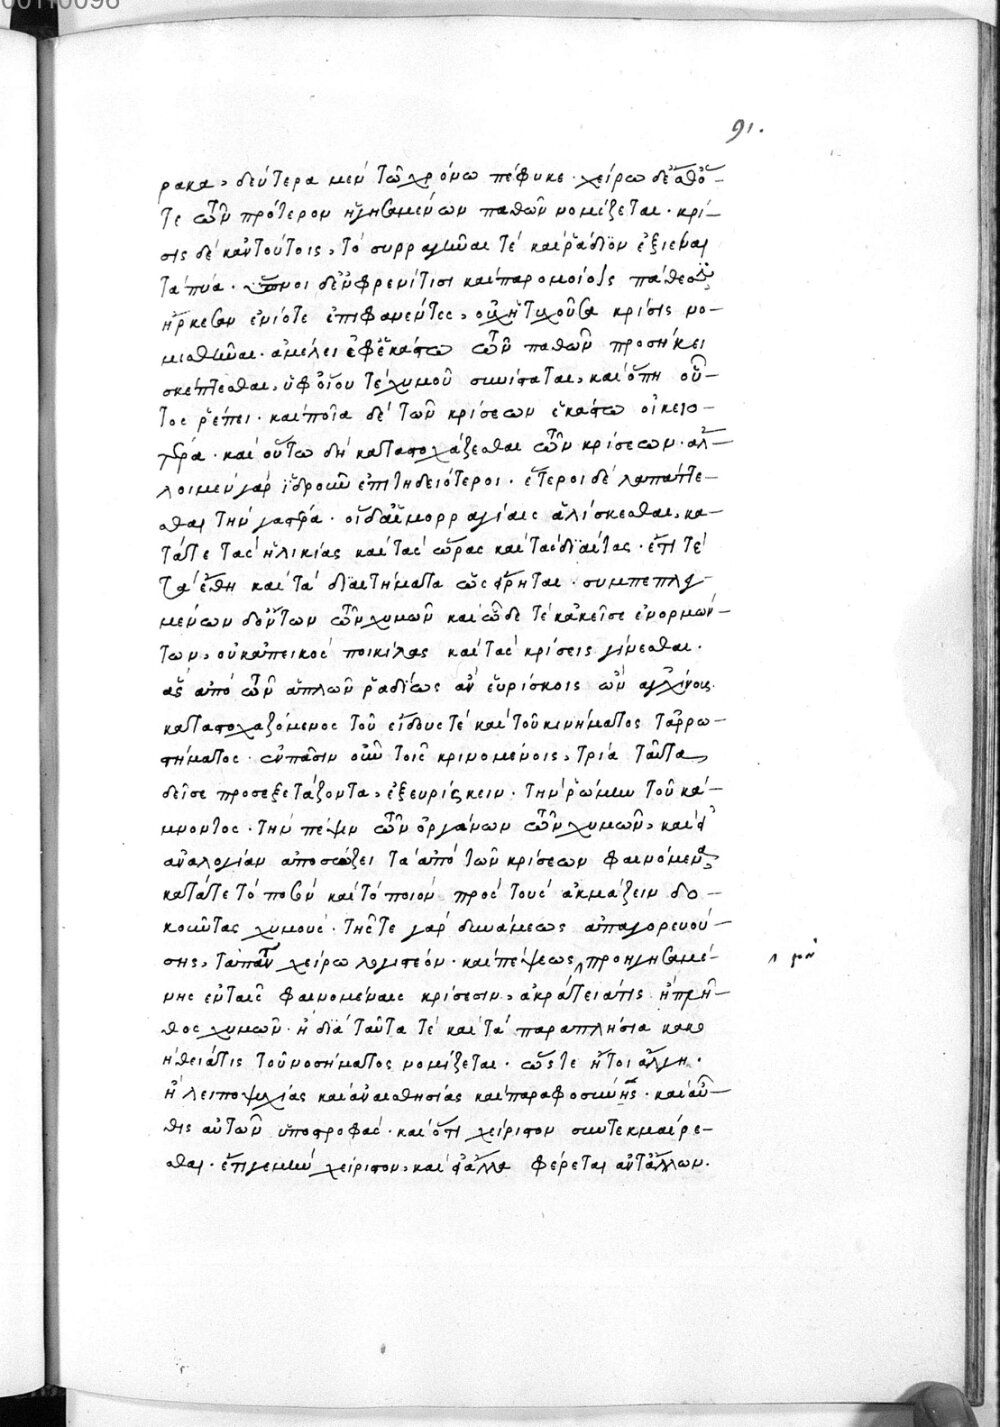 91.
ρακα, δεύτερα μὲν τῶ χρόνω πέφυκε· χείρω δὲ
τε τῶν πρότερον ἡγησαμένων παθῶν νομίζεται· κρί-
σις δὲ κἀν τούτοις, τὸ συρραγῆναι τὲ καὶ ῥάδιον ἐξιέναι
τὰ πύα· δ' ἐν φρενίτισι καὶ παρομοίοις πάθεσιν
ἤρκεσαν ἐνίοτε ἐπιφανέντες, οὐχ ἡ τυχοῦσα κρίσις νο-
μισθῆναι· ἀμέλει ἐφ' ἑκάστω τῶν παθῶν προσήκει
σκέπτεσθαι, ὑφ' οἵου τὲ χυμοῦ συνίσταται, καὶ ὅπη οὗ-
τος ῥέπει· καὶ ποῖα δὲ τῶν κρίσεων ἑκάστω οἰκειο-
τέρα· καὶ οὕτω δὴ καταστοχάζεσθαι τῶν κρίσεων· ἄλ-
λοι μὲν γὰρ ἱδροῦν ἐπιτηδειότεροι· ἕτεροι δὲ λαπάττε-
σθαι τὴν γαστέρα· οἱ δ' αἱμορραγίαις ἁλίσκεσθαι, κα-
τά τε τὰς ἡλικίας καὶ τὰς ὥρας καὶ τὰς διαίτας· ἔτι τὲ
τὰ ἔθη καὶ τὰ διαιτήματα ὡς εἴρηται· συμπεπλεγ-
μένων δ' ὄντων τῶν χυμῶν καὶ ὧδε τὲ κἀκεῖσε ἐνορμών-
των, οὐκ ἀπεικὸς ποικίλας καὶ τὰς κρίσεις γίνεσθαι.
ἃς ἀπὸ τῶν ἁπλῶν ῥαδίως ἂν εὑρίσκοις ὢν ἀγχίνους
καταστοχαζόμενος τοῦ εἴδους τὲ καὶ τοῦ κινήματος τἀρρω-
στήματος· ἐν πᾶσιν οὖν τοῖς κρινομένοις, τρία ταῦτα
δεῖ σε προσεξετάζοντα, ἐξευρίσκειν· τὴν ῥώμην τοῦ κά-
μνοντος· τὴν πέψιν τῶν ὀργάνων τῶν χυμῶν, καὶ εἰ
ἀναλογίαν ἀποσώζει τὰ ἀπὸ τῶν κρίσεων φαινόμενα,
κατά τε τὸ ποσὸν καὶ τὸ ποιὸν πρὸς τοὺς ἀκμάζειν δο-
κοῦντας χυμούς· τῆς τε γὰρ δυνάμεως ἀπαγορευού-
σης, τὰ πάντων χείρω λογιστέον· καὶ πέψεως ˄ προηγησαμέ- ˄ μὴ
νης ἐν ταῖς φαινομέναις κρίσεσιν, ἀκράτειά τις ἢ πλῆ-
θος χυμῶν· ἢ διὰ ταῦτα τὲ καὶ τὰ παραπλήσια κακο
ήθειά τις τοῦ νοσήματος νομίζεται· ὥστε ἤτοι ἄλγη·
ἢ λειποψυχίας καὶ ἀναισθησίας καὶ παραφροσύνης· καὶ αὖ-
θις αὐτῶν ὑποστροφάς· καὶ ὅτι χείριστον συντεκμαίρε-
σθαι· ἔτι γε μὴν χείριστον, καὶ εἰ ἄλλα φέρεται ἀντ' ἄλλων.